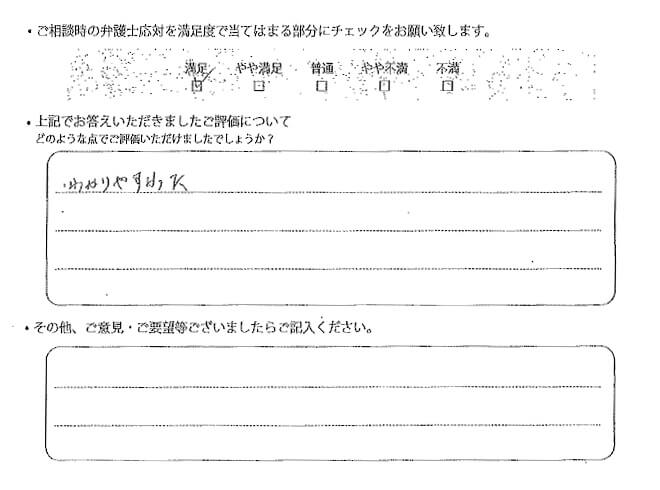 ・ご相談時の弁護士応対を満足度で当てはまる部分にチェックをお願い致します。
満足 やや満足 普通 やや不満 不満
☑ □ □ □ □
・上記でお答えいただきましたご評価について
どのような点でご評価いただけましたでしょうか？
わかりやすかった
・その他、ご意見・ご要望等ございましたらご記入ください。